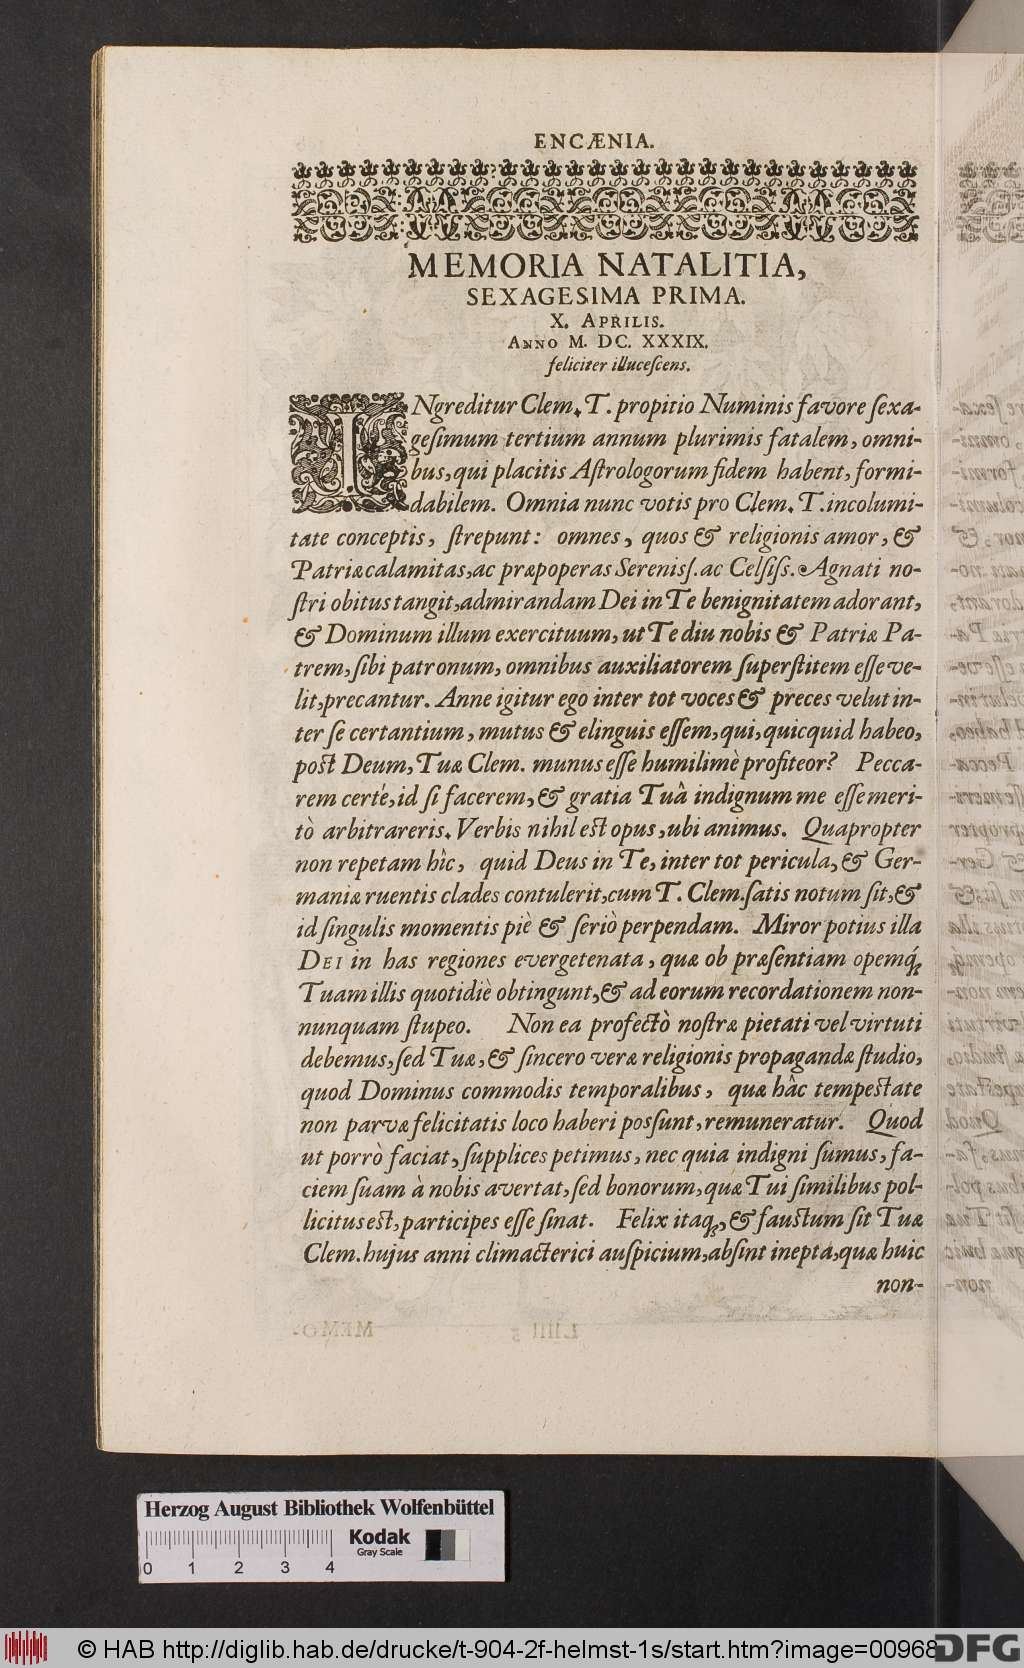 ENCÆNIA.
MEMORIA NATALITIA,
SEXAGESIMA PRIMA.
X. APRILIS.
ANNO M. DC. XXXIX.
feliciter illuceſcens.
INgreditur Clem. T. propitio Numinis favore ſexa-
geſimum tertium annum plurimis fatalem, omni-
bus, qui placitis Aſtrologorum fidem habent, formi-
dabilem. Omnia nunc votis pro Clem. T. incolumi-
tate conceptis, ſtrepunt: omnes, quos & religionis amor, &
Patriæ calamitas, ac præpoperas Sereniſſ. ac Celſiſs. Agnati no-
ſtri obitus tangit, admirandam Dei in Te benignitatem adorant,
& Dominum illum exercituum, ut Te diu nobis & Patriæ Pa-
trem, ſibi patronum, omnibus auxiliatorem ſuperſtitem eſſe ve-
lit, precantur. Anne igitur ego inter tot voces & preces velut in-
ter ſe certantium, mutus & elinguis eſſem, qui, quicquid habeo,
poſt Deum, Tuæ Clem. munus eſſe humilimè profiteor? Pecca-
rem certé, id ſi facerem, & gratia Tuâ indignum me eſſe meri-
tò arbitrareris. Verbis nihil eſt opus, ubi animus. Quapropter
non repetam hîc, quid Deus in Te, inter tot pericula, & Ger-
maniæ ruentis clades contulerit, cum T. Clem. ſatis notum ſit, &
id ſingulis momentis piè & ſeriò perpendam. Miror potius illa
DEI in has regiones evergetenata, quæ ob præſentiam opemq́;
Tuam illis quotidiè obtingunt, & ad eorum recordationem non-
nunquam ſtupeo. Non ea profectò noſtræ pietati vel virtuti
debemus, ſed Tuæ, & ſincero veræ religionis propagandæ ſtudio,
quod Dominus commodis temporalibus, quæ hâc tempeſtate
non parvæ felicitatis loco haberi posſunt, remuneratur. Quod
ut porrò faciat, ſupplices petimus, nec quia indigni ſumus, fa-
ciem ſuam à nobis avertat, ſed bonorum, quæ Tui ſimilibus pol-
licitus eſt, participes eſſe ſinat. Felix itaq;, & fauſtum ſit Tuæ
Clem. hujus anni climacterici auſpicium, abſint inepta, quæ huic
non-
Herzog August Bibliothek Wolfenbüttel
Kodak
Gray Scale
0 1 2 3 4
© HAB http://diglib.hab.de/drucke/t-904-2f-helmst-1s/start.htm?image=00968
DFG